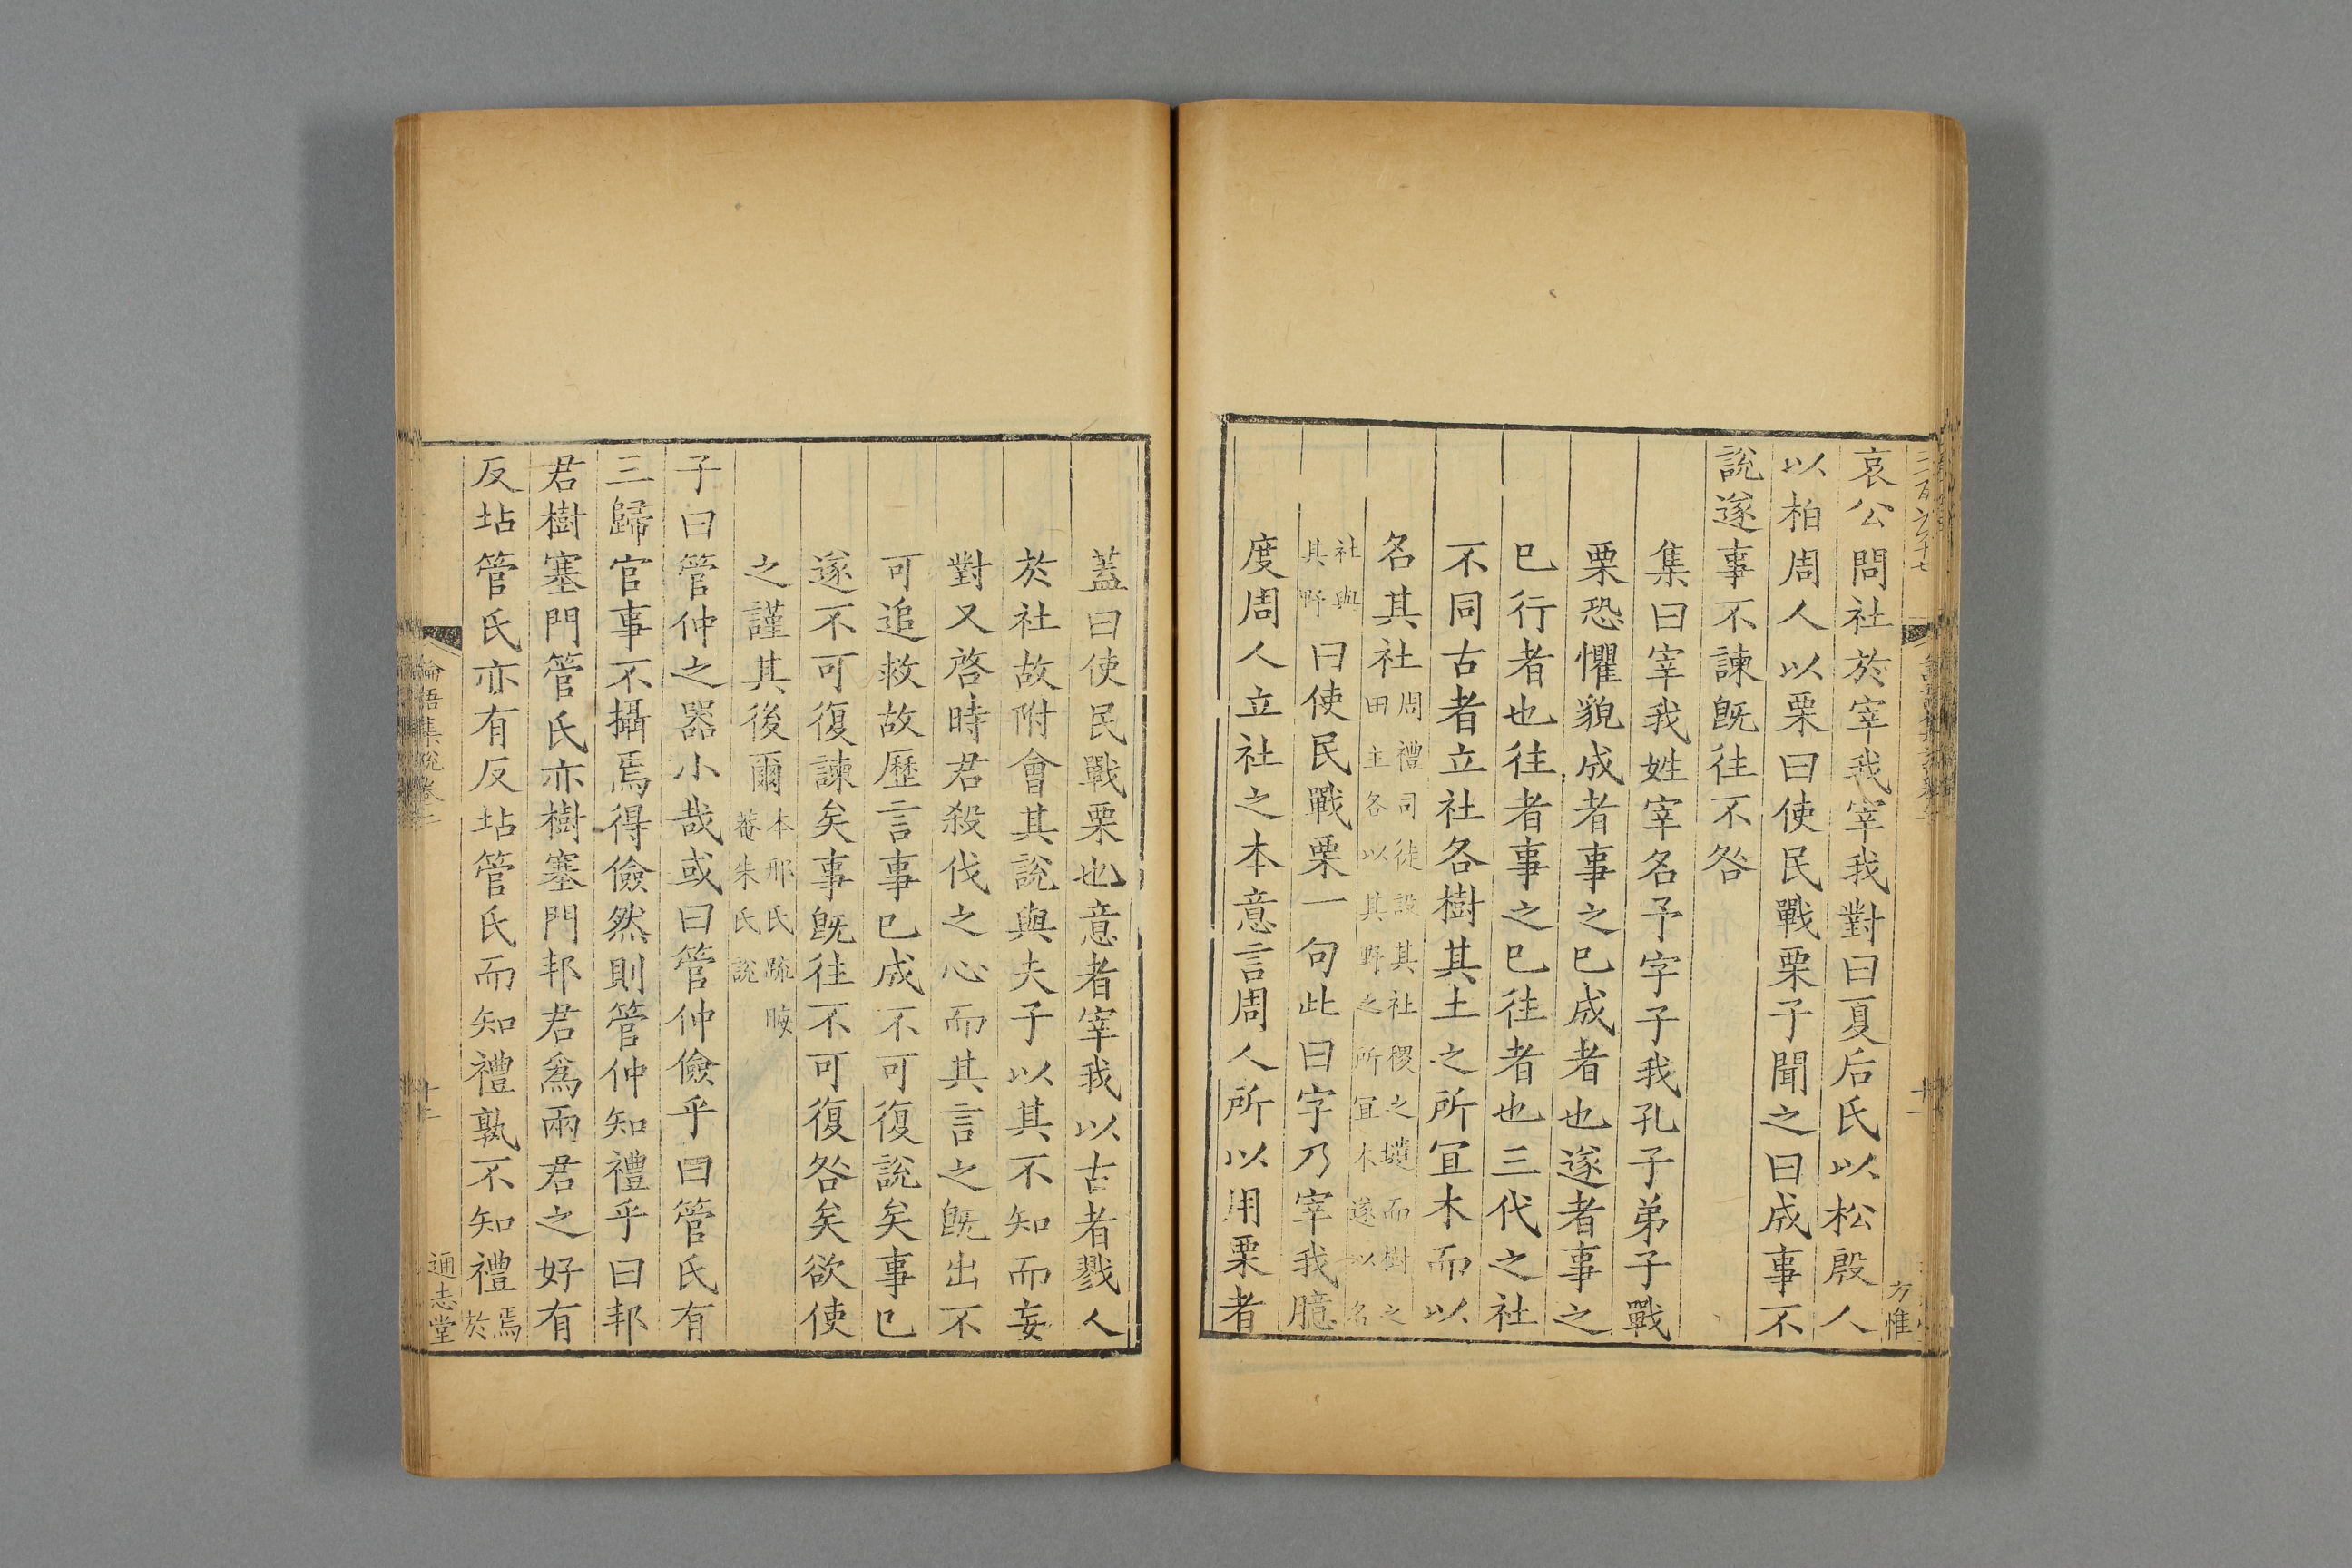 哀公問社於宰我宰我對曰夏后氏以松殷人
以柏周人以栗曰使民戰栗子聞之曰成事不
說遂事不諫旣往不咎
集曰宰我姓宰名予字子我孔子弟子戰
栗恐懼貌成者事之巳成者也遂者事之
巳行者也往者事之巳往者也三代之社
不同古者立社各樹其土之所冝木而以
名其社周禮司徒設其社稷之壝而樹之田主各以其野之所冝木遂以名
社與其野曰使民戰栗一句此曰字乃宰我臆
度周人立社之本意言周人所以用栗者
蓋曰使民戰栗也意者宰我以古者戮人
於社故附會其說與夫子以其不知而妄
對又啓時君殺伐之心而其言之旣出不
可追救故歷言事巳成不可復說矣事巳
遂不可復諫矣事旣往不可復咎矣欲使
之謹其後爾本邢氏疏晦菴朱氏說
子曰管仲之器小哉或曰管仲儉乎曰管氏有
三歸官事不攝焉得儉然則管仲知禮乎曰邦
君樹塞門管氏亦樹塞門邦君爲兩君之好有
反坫管氏亦有反坫管氏而知禮孰不知禮焉於
論語集說卷二
十二
通志堂